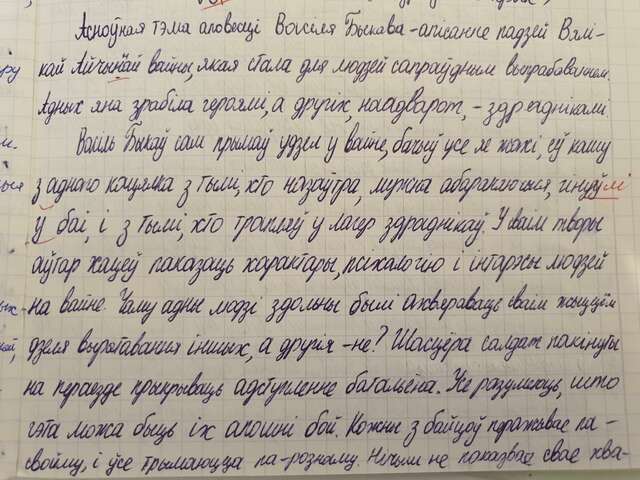 Асноўная тэма аповесці Васіля Быкава - апісанне падзей Вялі-
кай Айчыннай вайны, якая стала для людзей сапраўдным выпрабаваннем.
Адных яна зрабіла героямі, а другіх, наадварот, - здраднікамі.
Васіль Быкаў сам прымаў удзел у вайне, бачыў усе яе жахі, еў кашу
з аднаго кацялка з тымі, хто назаўтра, мужна абараняючыся, гінуў
у баі, і з тымі, хто трапляў у лагер здраднікаў. У сваім творы
аўтар хацеў паказаць характары, псіхалогію і інтарэсы людзей
на вайне. Чаму адны людзі здольны былі ахвяраваць сваім жыццём
дзеля выратавання іншых, а другія - не? Шасцёра салдат пакінуты
на пераездзе прыкрываць адступленне батальёна. Усе разумеюць, што
гэта можа быць іх апошні бой. Кожны з байцоў перажывае па-
свойму, і ўсе трымаюцца па-рознаму. Нічым не паказвае свае хва-